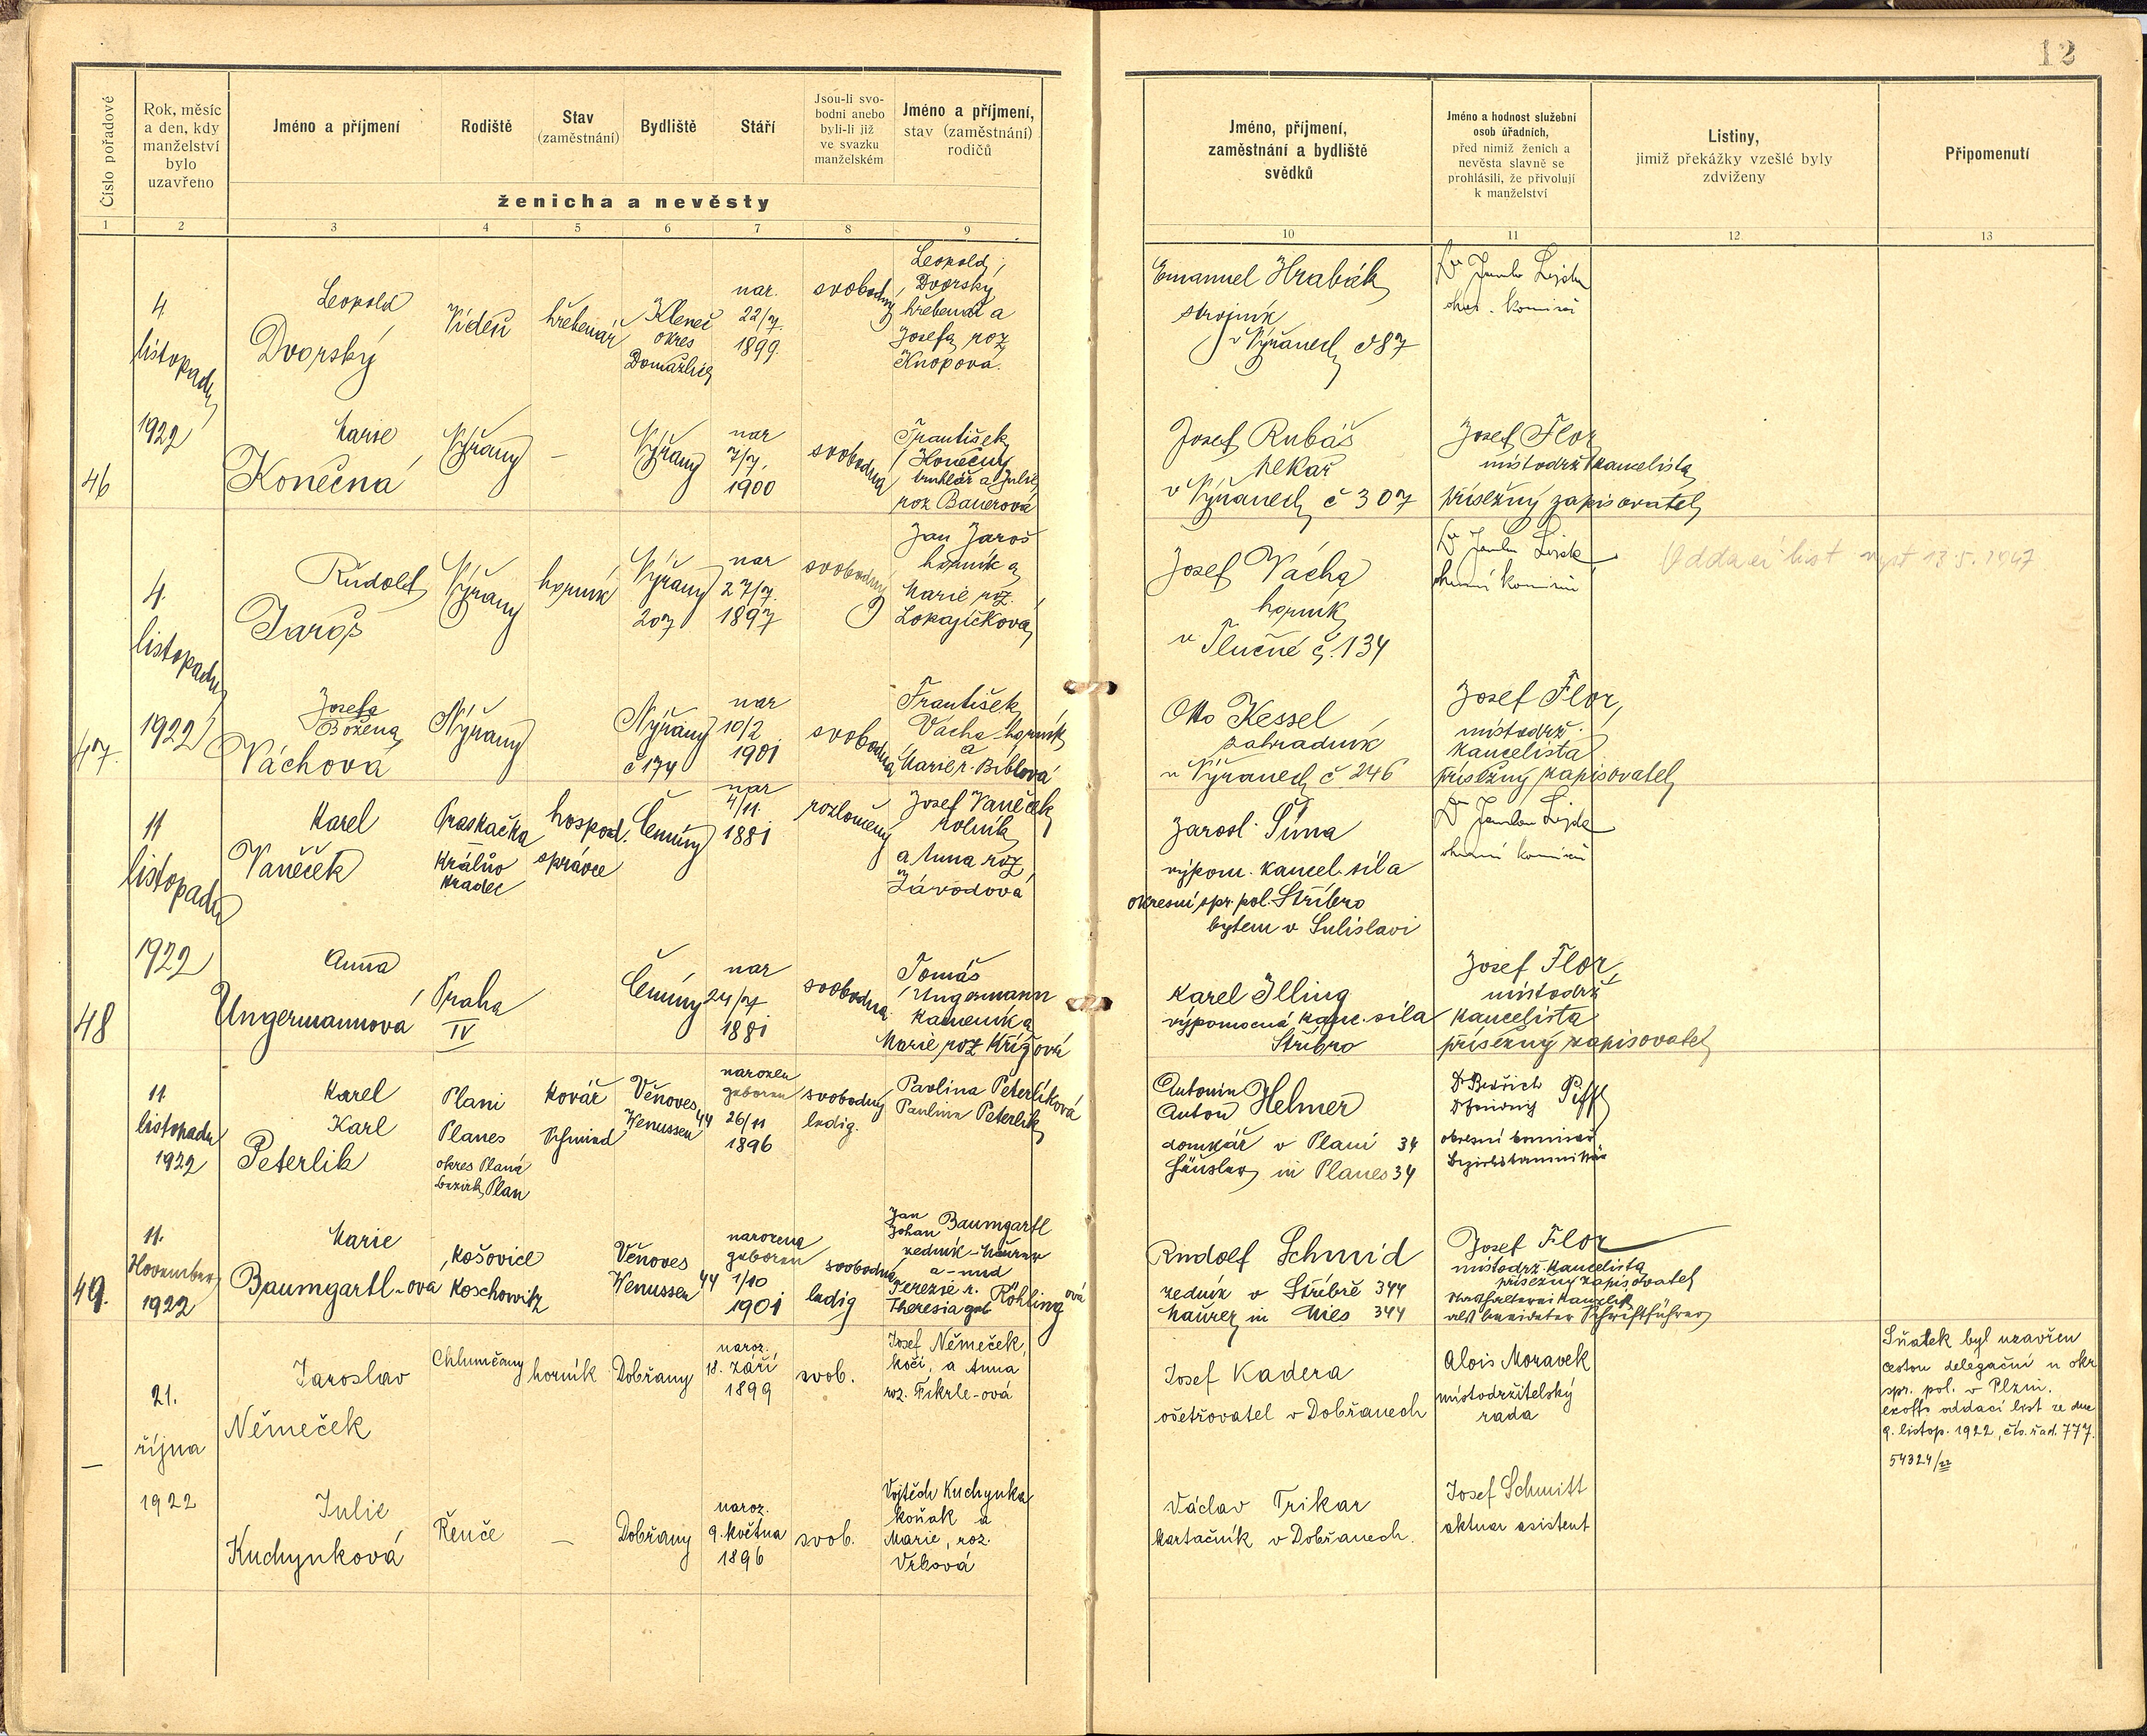 12
Číslo pořadové
Rok, měsíc
a den, kdy
manželství
bylo
uzavřeno
Jméno a příjmení
Rodiště
Stav
(zaměstnání)
Bydliště
Stáří
Jsou-li svo-
bodni anebo
byli-li již
ve svazku
manželském
Jméno a příjmení,
stav (zaměstnání)
rodičů
ženicha a nevěsty
Jméno, příjmení,
zaměstnání a bydliště
svědků
Jméno a hodnost služební
osob úřadních,
před nimiž ženich a
nevěsta slavně se
prohlásili, že přivolují
k manželství
Listiny,
jimiž překážky vzešlé byly
zdviženy
Připomenutí
1 2 3 4 5 6 7 8 9 10 11 12 13
46
4
listopadu
1922
Leopold
Dvorský
Vídeň
hřebenář
Kleneč
okres
Domažlice
nar.
22/7.
1899.
svobodný
Leopold
Dvorský
hřebenář a
Josefa roz
Knopova.
Emanuel Hrabák
strojník
v Nýřanech č 87
okr. komisař
Marie
Konečná
Nýřany
—
Nýřany
nar
7/7.
1900
svobodna
František
Konečný
truhlář a Julie
roz Bauerová
Josef Rubáš
pekař
v Nýřanech č 307
Josef Flor
místodrž kancelista
přísežný zapisovatel
47.
4.
listopadu
1922
Rudolf
Jaroš
Nýřany
horník
Nýřany
207
nar
27/7.
1897
svobodný
Jan Jaroš
horník a
Marie roz.
Lokajíčková
Josef Vácha
horník
v Tlučné č. 134
okresní komisař
Oddací list vyst 13.5.1947
Josefa
Božena
Váchova
Nýřany
Nýřany
č 174
nar
10/2
1901
svobodna
František
Vácha horník
a
Marie r. Biblová
Otto Kessel
zahradník
v Nýřanech č. 246
Josef Flor,
místodrž.
kancelista
přísežný zapisovatel
48
11
listopadu
1922
Karel
Vaněček
Praskačka
Králův
Hradec
hospod.
správce
Čeminy
nar
4/11.
1881
rozloučený
Josef Vaněček
rolník
a Anna roz
Závodová
Jarosl. Šíma
výpom. kancel. síla
okresní spr. pol. Stříbro
bytem v Sulislavi
okresní komisař
Anna
Ungermannová
Praha
IV
Čeminy
nar
24/7
1881
svobodna
Tomáš
Ungermann
kameník a
Marie roz Křížová
Karel Illing
výpomocná kanc. síla
Stříbro
Josef Flor,
místodrž
kancelista
přísežný zapisovatel
49.
11
listopadu
1922
Karel
Karl
Peterlik
Plani
Planes
okres Planá
Bezirk Plan
kovář
Schmied
Věnoves
Wenussen 44
narozen
geboren
26/11
1896
svobodný
ledig.
Pavlina Peterlíková
Pauline Peterlik
Antonín
Anton Helmer
domkář v Plani 34
Häusler in Planes 34
Dr Bedřich
Dr Friedrich Piffl
okresní komisař
Bezirkskommissär
11.
November
1922
Marie
Baumgartl-ova
Košovice
Koschowitz
Věnoves
Wenussen 44
narozena
geboren
1/10
1901
svobodná
ledig
Jan
Johan Baumgartl
zedník - Maurer
a - und
Terezie r.
Theresia geb Röhling ová
Rudolf Schmid
zedník v Stříbře 344
Maurer in Mies 344
Josef Flor
místodrž. kancelista
přísežný zapisovatel
Schriftführer
—
21.
října
1922
Jaroslav
Němeček
Chlumčany
horník
Dobřany
naroz.
18. září
1899
svob.
Josef Němeček,
kočí, a Anna
roz. Fikrle-ová
Josef Kadera
ošetřovatel v Dobřanech
Alois Moravek
místodržitelský
rada
Sňatek byl uzavřen
cestou delegační u okr.
spr. pol. v Plzni.
exoffo oddací list ze dne
9. listop. 1922, čís. řad. 777.
54324/22
Julie
Kuchynková
Řenče
—
Dobřany
naroz.
9. května
1896
svob.
Vojtěch Kuchynka
koňak a
Marie, roz.
Vrbová
Václav Trikar
kartáčník v Dobřanech.
Josef Schmitt
aktuar asistent